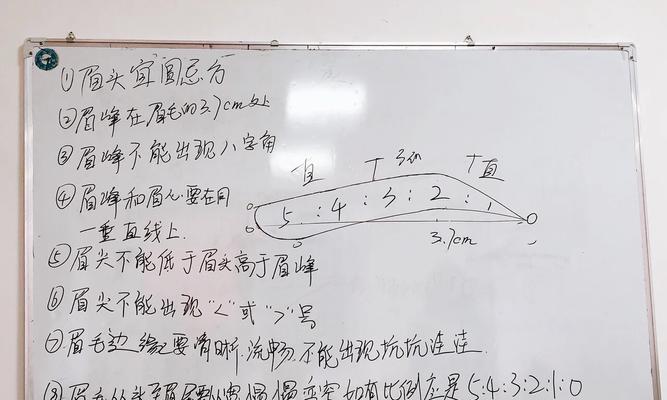 ①眉头宜圆忌方
②眉峰在眉毛的3.7cm处
③眉峰不能出现八字角
④眉峰和眉心要在同
一垂直线上.
⑤眉尖不能低于眉头高于眉峰
⑥眉尖不能出现"<"或">"号
⑦眉毛边缘要清晰.流畅.不能出现坑坑洼洼.
⑧眉毛从头至眉尾要从宽慢慢变窄如有比例应是5:4:3:2:1:0
直
直
5:4:3:2:1
0
3.7cm